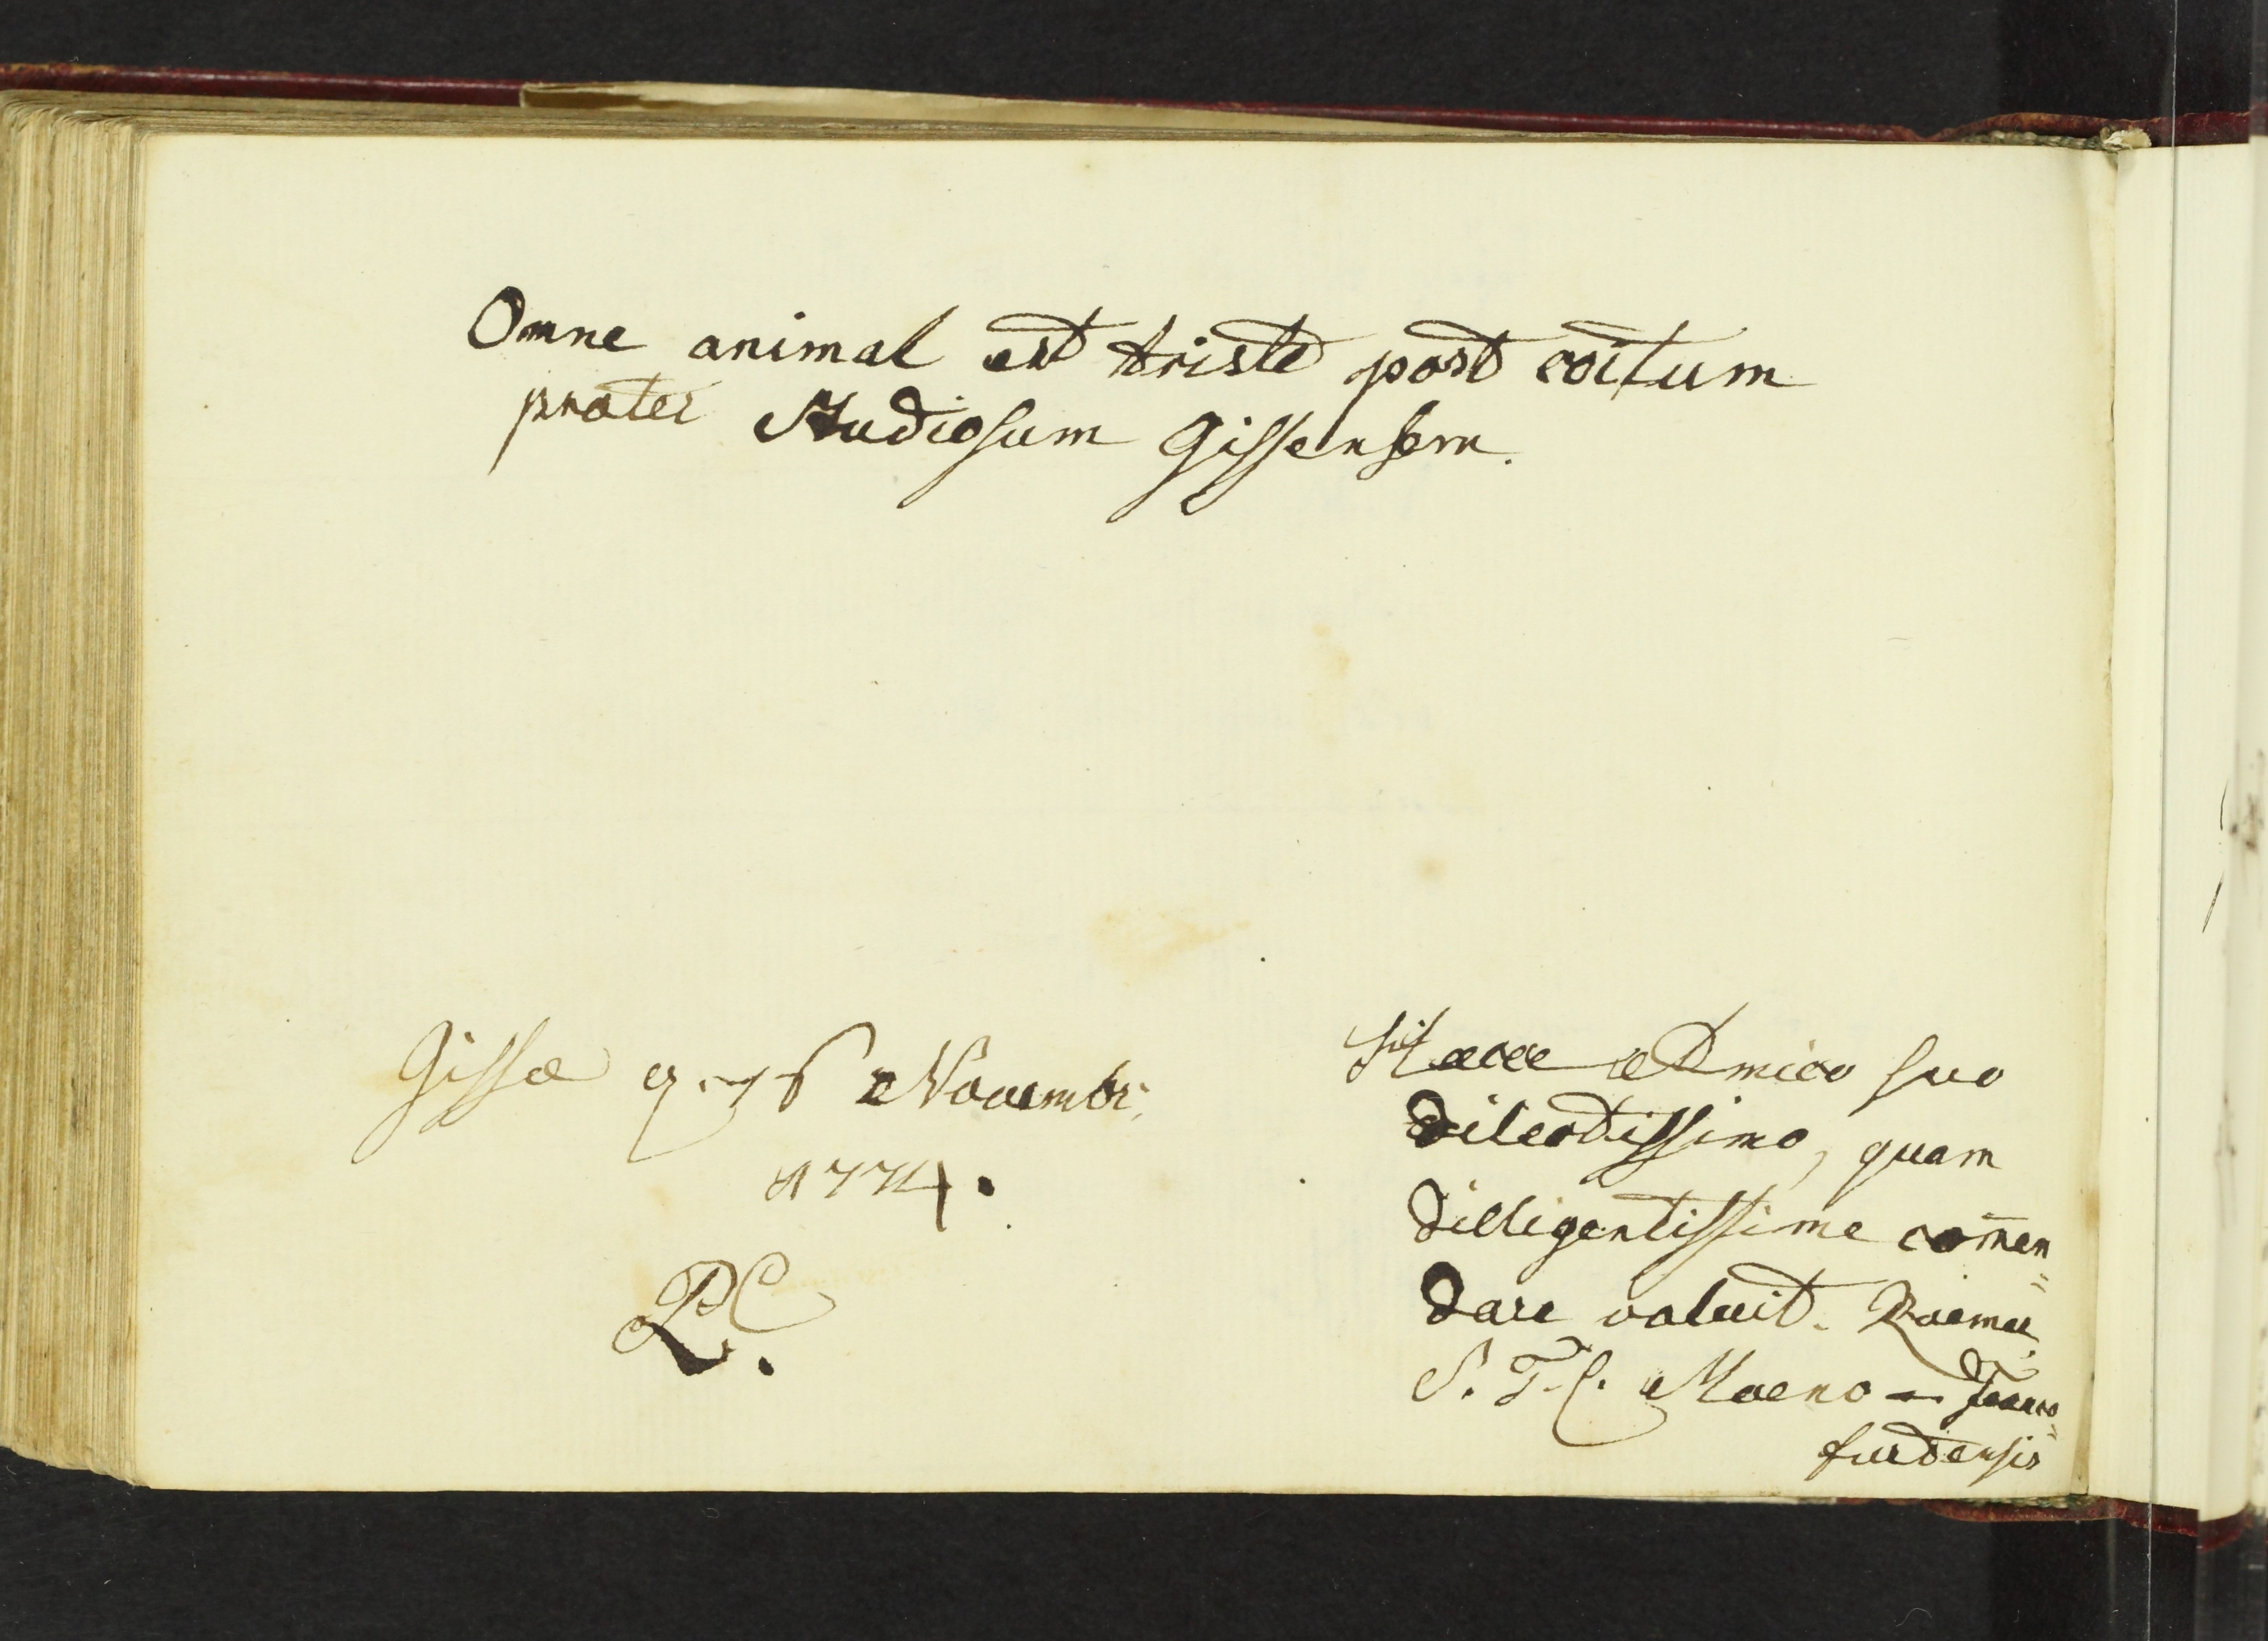 Omne animal est triste post coitum
prater Studiosum Gissensem.
Gissæ Novembr.
1774.
Haece Amico suo
dilectissimo, quam
dilligentissime com̅en=
dare voluit.
S. T. C. Moeno — Franco=
furtensis